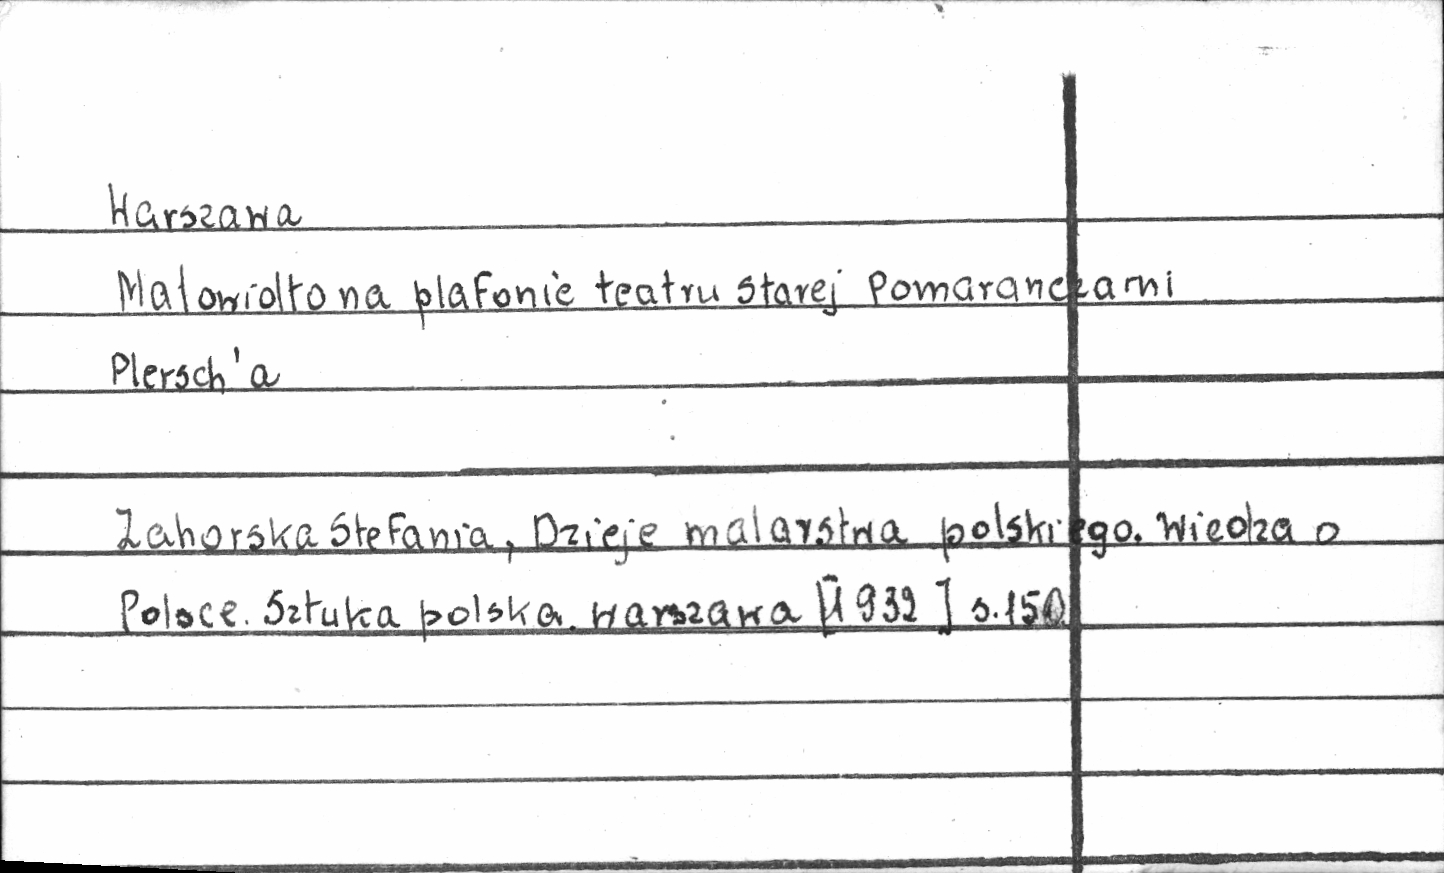 Warszawa
Malowidło na plafonie teatru starej Pomarańczarni
Plersch'a
Zahorska Stefania, Dzieje malarstwa polskiego. Wiedza o
Polsce. Sztuka polska. Warszawa [1932] s.150